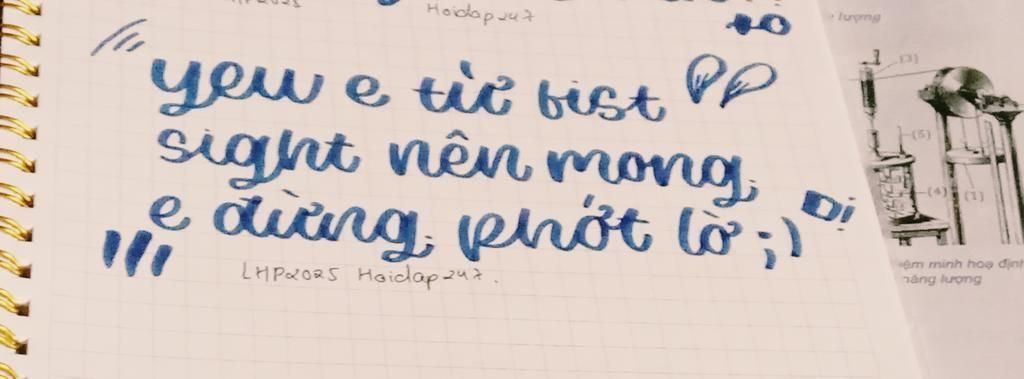 LHP2025
Hoidap247
yew e từ fist
sight nên mong
e đừng phớt lờ ;)
LHP2025 Hoidap247.
lượng
(3)
(5)
(4)
(1)
minh hoạ định
năng lượng